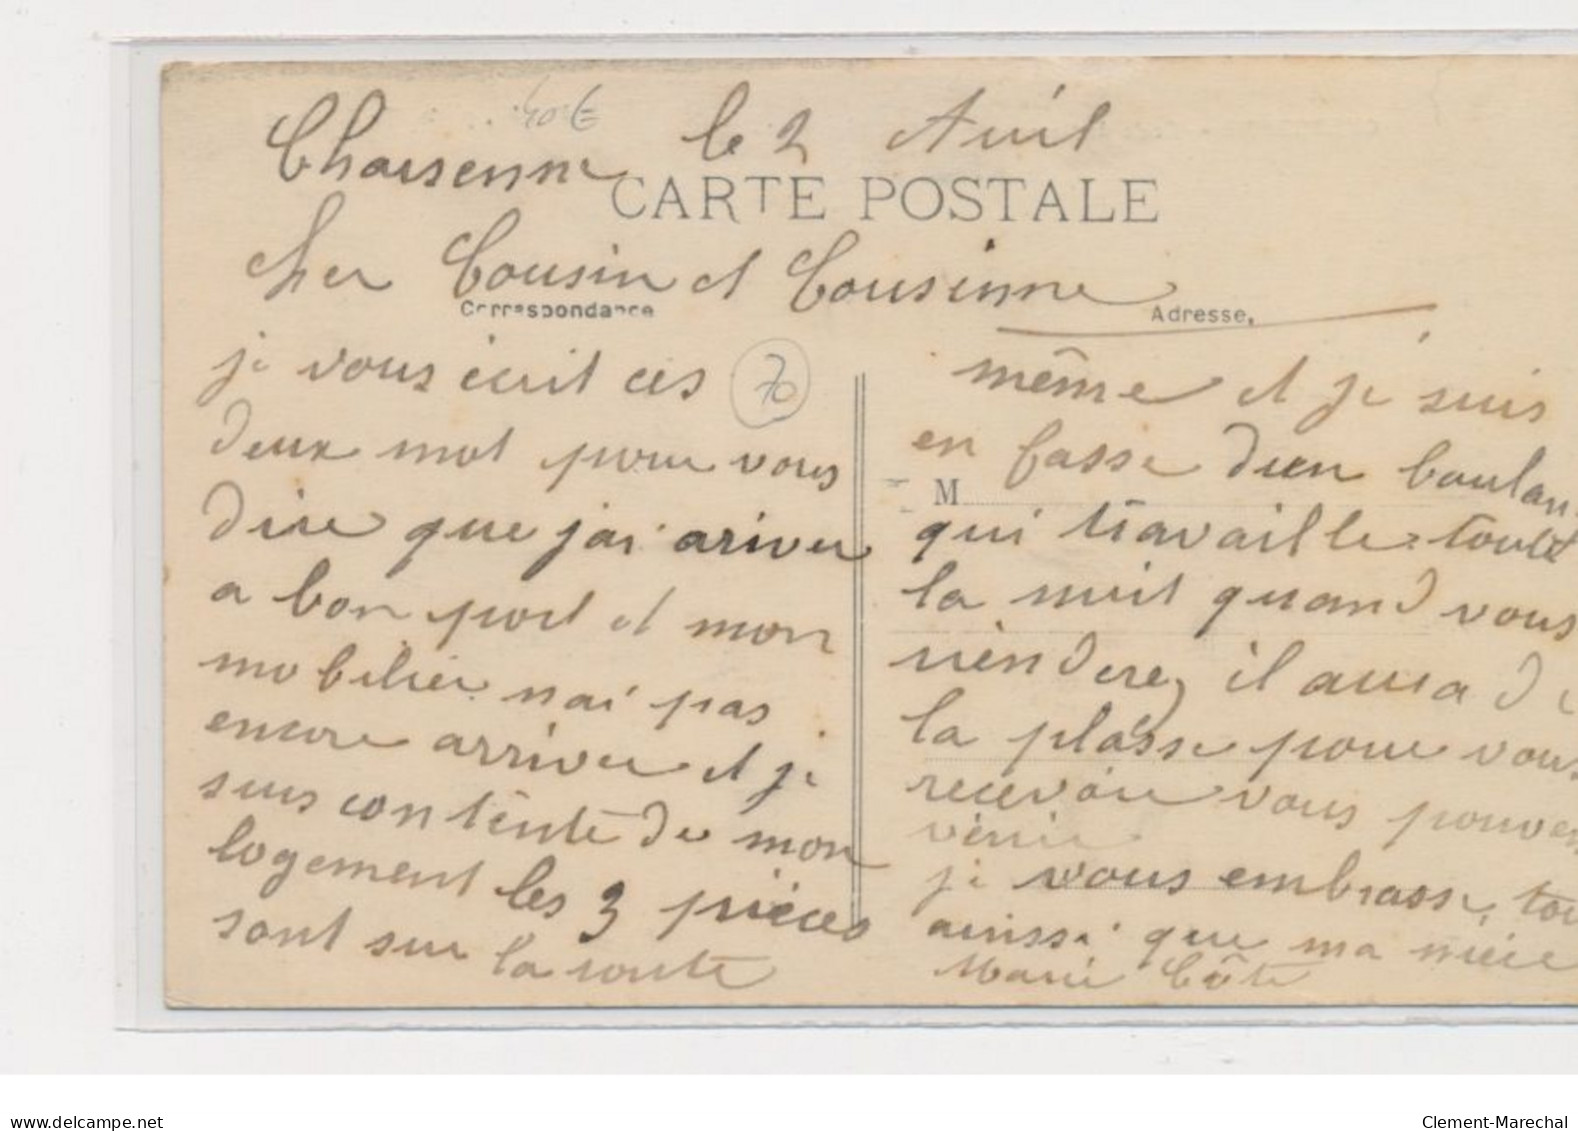 40 €
le 2 Avril
CARTE POSTALE
cher Cousin et Cousinne
Correspondance
Adresse,
je vous écrit ces
70
deux mot pour vous
dire que jai ariver
a bon port et mon
mobilier nai pas
encore arriver et je
suis contente de mon
logement les 3 pièces
sont sur la route
même et je suis
en fasse dun boulan
M
qui travaille toute
la nuit quand vous
viendrez il aura de
la plasse pour vous
recevoir vous pouvez
venir
je vous embrasse tou
ainssi que ma nièce
Marie Côte
www.delcampe.net
Clement-Marechal